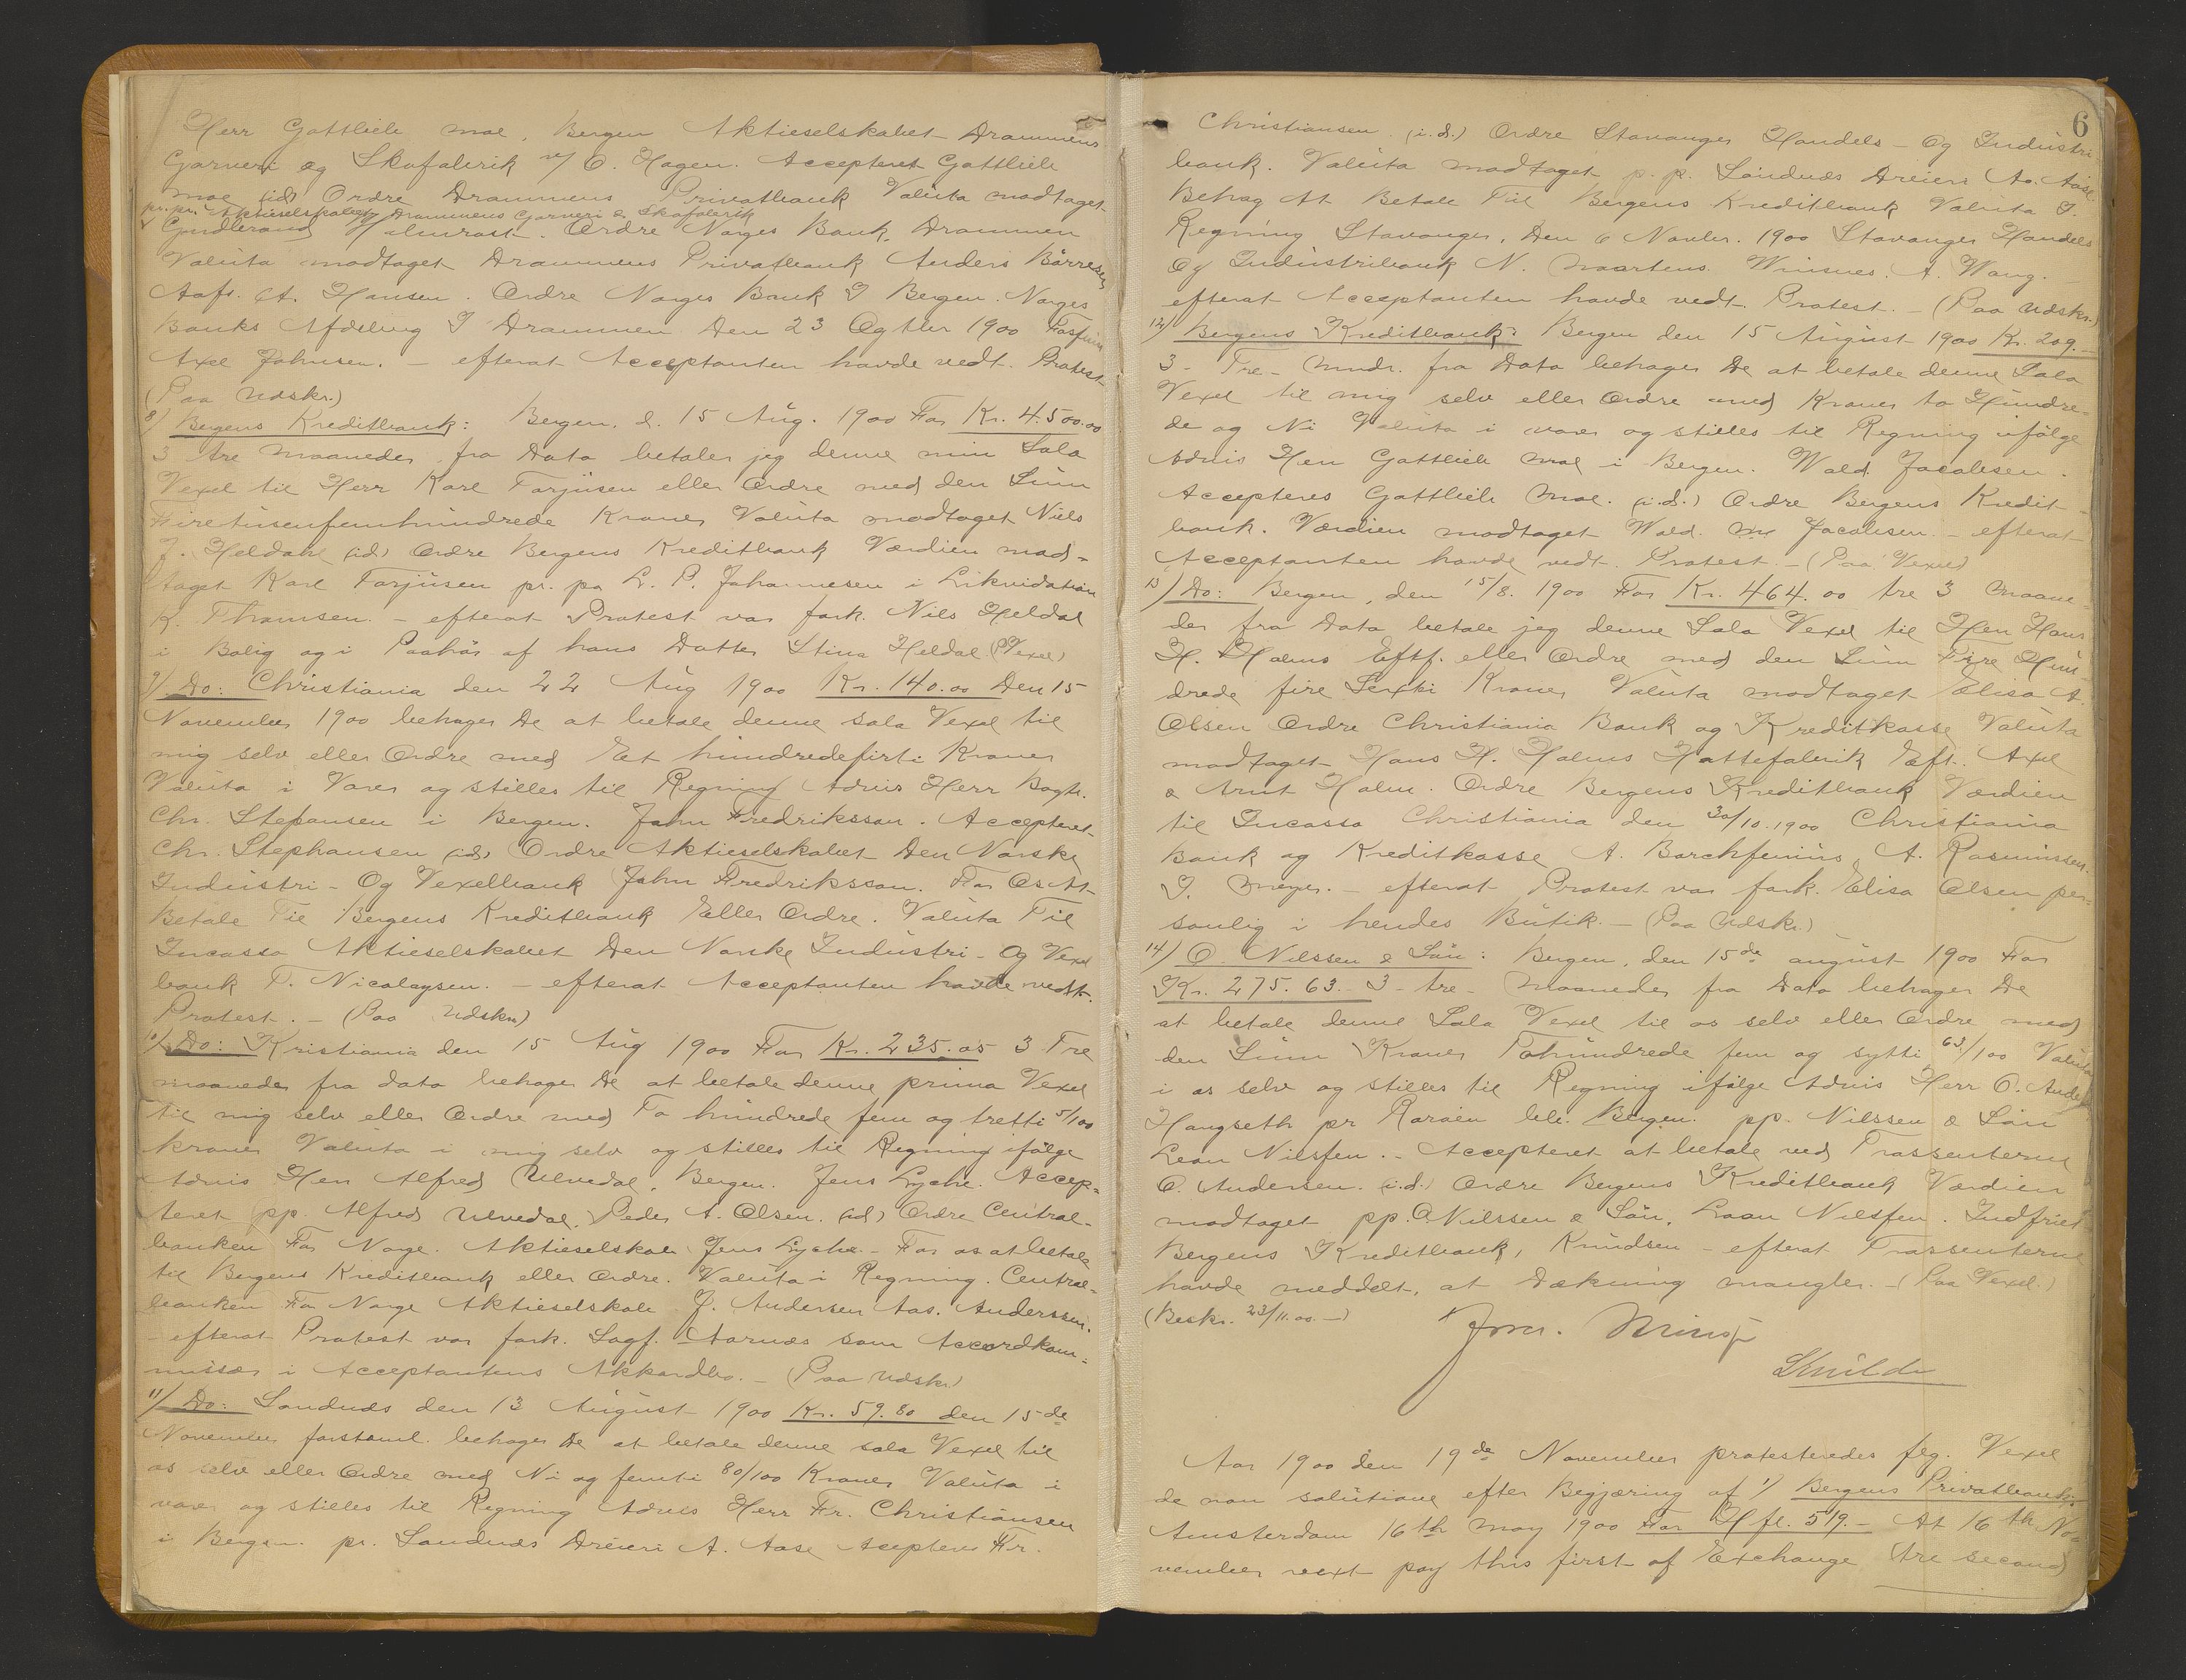 Herr Gottlieb Moe, Bergen Aktieselskabet Drammens
Garveri og Skofabrik v/ O. Hagen. Accepteret Gottlieb
Moe (id) Ordre Drammens Privatbank Valuta modtaget
pr. pr. Aktieselskabet Drammens Garveri & Skofabrik
Gudbrand Halmrast. Ordre Norges Bank, Drammen
Valuta modtaget Drammens Privatbank Anders Börresen
Aafs. A. Hansen. Ordre Norges Bank I Bergen. Norges
Banks Afdeling I Drammen Den 23 Ogtbr 1900
Axel Johnsen. – efterat Acceptanten havde vedt. Protest
(Paa Udskr.)
8/ Bergens Kreditbank: Bergen. d. 15 Aug. 1900 For Kr. 4500.00
3 tre Maaneder fra Dato betaler jeg denne min Sola
Vexel til Herr Karl Torjusen eller Ordre med den Sum
Firetusenfemhundrede Kroner Valuta modtaget Niels
J. Heldahl (id) Ordre Bergens Kreditbank Værdien mod-
taget Karl Torjusen pr. pa L. P. Johannesen i Likvidation
K. Thomsen. – efterat Protest var fork. Nils Heldal
i Bolig og i Paahör af hans Datter Stina Heldal (P Vexel)
9/ Do: Christiania den 22 Aug 1900 Kr. 140.00 Den 15
November 1900 behager De at betale denne sola Vexel til
mig selv eller Ordre med Et hundredefirti Kroner
Valuta i Varer og stilles til Regning Advis Herr Bagtr.
Chr. Stepansen i Bergen. John Fredriksson. Accepteret
Chr. Stephansen (id) Ordre Aktieselskabet Den Norske
Industri- Og Vexelbank John Fredriksson. For Os At
Betale Til Bergens Kreditbank Eller Ordre. Valuta Til
Incasso Aktieselskabet Den Norske Industri- Og Vexel
bank T. Nicolaysen. – efterat Acceptanten havde vedt.
Protest. – (Paa Udskr)
10/ Do: Kristiania den 15 Aug 1900 For Kr. 235.05 3 Tre
maaneder fra dato behager De at betale denne prima Vexel
til mig selv eller Ordre med To hundrede fem og tretti 5/100
kroner Valuta i mig selv og stilles til Regning ifölge
Advis Herr Alfred Ulvedal, Bergen. Jens Lyche. Accep-
teret pp. Alfred Ulvedal. Peder A. Olsen. (id) Ordre Central-
banken For Norge. Aktieselskab Jens Lyche – For os at betale
til Bergens Kreditbank eller Ordre. Valuta i Regning. Central-
banken For Norge Aktieselskab J. Andersen Aas. Anderssen.
– efterat Protest var fork. Sagf. Aarnæs som Accordkom-
missær i Acceptantens Akkordbo. – (Paa Udskr)
11/ Do: Sandnæs den 13 August 1900 Kr. 59.80 den 15de
November förstoml. behager De at betale denne sola Vexel til
os selv eller Ordre med Ni og femti 80/100 Kroner Valuta i
varer og stilles til Regning Advis Herr Fr. Christiansen
i Bergen. pr. Sandnæs Dreieri A. Aase Acepteres Fr.
6
Christiansen. (i.d.) Ordre Stavanger Handels- Og Industri
bank. Valuta modtaget p.p. Sandnæs Dreieri Ao. Aase
Behag At Betale Til Bergens Kreditbank Valuta I.
Regning Stavanger, Den 6 Novbr. 1900 Stavanger Handels
Og Industribank N. Maartens Winsnes. A. Wang.
efterat Acceptanten havde vedt. Protest. – (Paa Udskr.)
12/ Bergens Kreditbank: Bergen den 15 August 1900 Kr. 209.–
3 – Tre – Mndr. fra Dato behager De at betale denne Sola
Vexel til mig selv eller Ordre med Kroner to Hundre-
de og Ni Valuta i varer og stilles til Regning ifölge
Advis Herr Gottlieb Moe i Bergen. Wald. Jacobsen.
Accepteres Gottlieb Moe. (i.d.) Ordre Bergens Kredit-
bank. Værdien modtaget Wald. Jacobsen. – efterat
Acceptanten havde vedt. Protest. – (Paa Vexel)
13/ Do: Bergen, den 15/8. 1900 For Kr. 464.00 tre 3 Maane-
der fra Dato betale jeg denne Sola Vexel til Herr Hans
H. Holms Eftf. eller Ordre med den Sum Fire Hun-
drede fire Sexti Kroner Valuta modtaget Elisa A.
Olsen Ordre Christiania Bank og Kreditkasse Valuta
modtaget Hans H. Holms Hattefabrik Eft. Axel
& Arnt Holm. Ordre Bergens Kreditbank Værdien
til Incasso Christiania den 30/10.1900 Christiania
Bank og Kreditkasse A. Borchfenius, A. Rasmussen.
I. Meyer. – efterat Protest var fork. Elisa Olsen per-
sonlig i hendes Butik. – (Paa Udskr.)
14/ O. Nilssen & Sön: Bergen, den 15de august 1900 For
Kr. 275.63. 3 – tre – Maaneder fra Dato behager De
at betale denne Sola Vexel til os selv eller Ordre med
den Sum Kroner Tohundrede fem og sytti 63/100 Valuta
i os selv og stilles til Regning ifölge Advis Herr O. Anders
Haugseth pr Raröen bli. Bergen. pp. Nilssen & Sön
Leon Nilsfen. – Accepteret at betale ved Trassenterne
O. Andersen. (i.d.) Ordre Bergens Kreditbank Værdien
modtaget pp. O Nilssen & Sön, Leon Nilsfen. Indfriet
Bergens Kreditbank, Knudsen – efterat Trassenterne
havde meddelt, at Dækning mangler. – (Paa Vexel.)
(Beskr. 23/11.00. –)
Aar 1900 den 19de November protesteredes flg. Vexel
de non solutione efter Begjæring af 1/ Bergens Privatbank:
Amsterdam 16th May 1900 For Hfl. 519.– At 16th No-
vember next pay this first of Exchange (the second